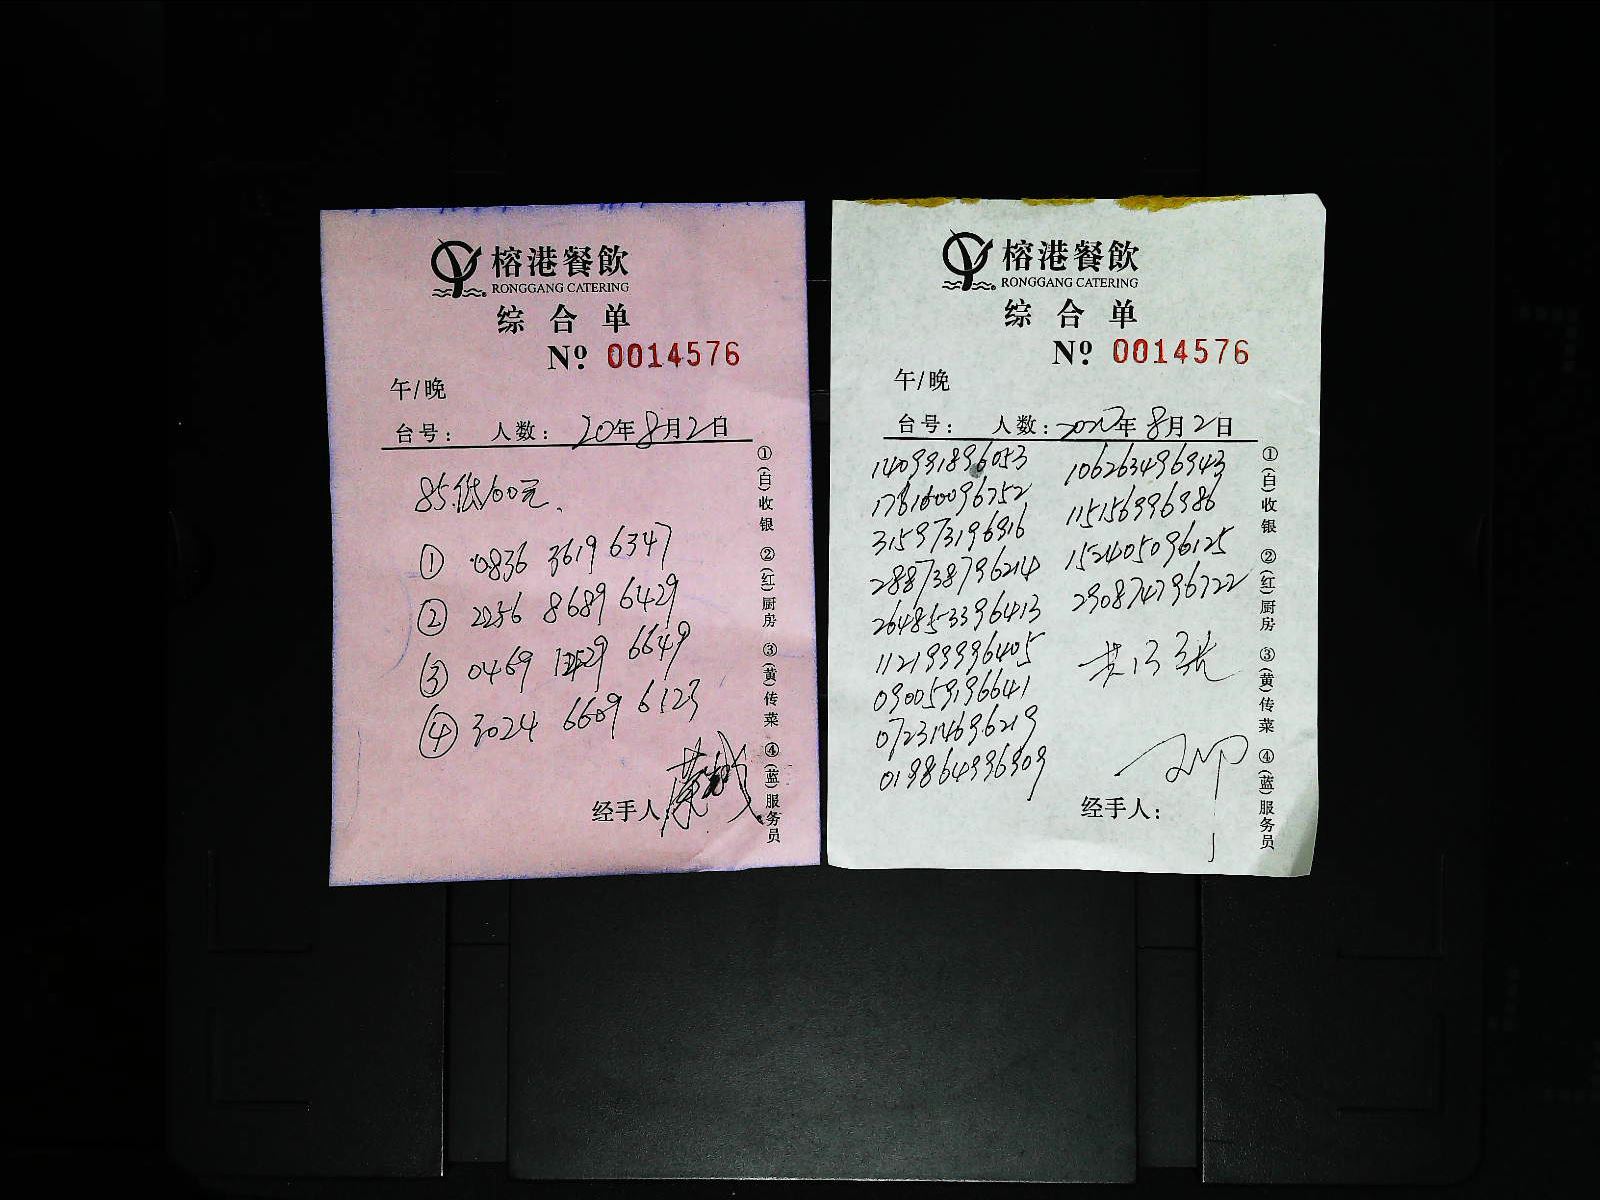 榕港餐飲
RONGGANG CATERING
综合单
Nº 0014576
午/晚
台号: 人数: 20年8月2日
85抵100元.
① 0836 3619 6347
② 2256 8689 6429
③ 0469 6649
④ 3024 6609 6123
经手人
①(白)收银 ②(红)厨房 ③(黄)传菜 ④(蓝)服务员
榕港餐飲
RONGGANG CATERING
综合单
Nº 0014576
午/晚
台号: 人数: 年8月2日
140991896053
176160096752
315973196916
288738796214
264853396413
112199996405
090059196641
072314696219
019864996909
106263496943
115156996986
152405096125
290874796722
共13张
经手人:
①(白)收银 ②(红)厨房 ③(黄)传菜 ④(蓝)服务员